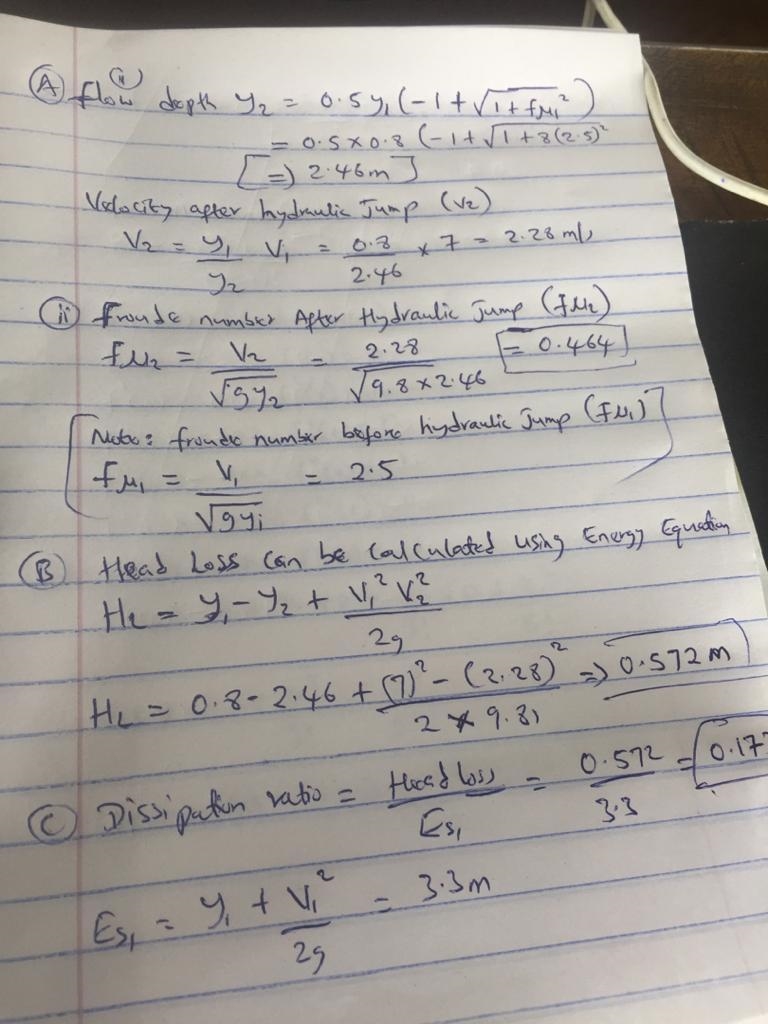 (A) (i) flow depth y₂ = 0.5 y₁ (-1 + √1 + fμ₁²)
= 0.5 × 0.8 (-1 + √1 + 8(2.5)²
[=) 2.46m]
Velocity after hydraulic Jump (V2)
V₂ = y₁/y₂ V₁ = 0.8/2.46 × 7 = 2.28 m/s
(ii) froude number After Hydraulic Jump (fμ₂)
fμ₂ = V₂/√gy₂ = 2.28/√9.8 × 2.46 = 0.464
Note: froude number before hydraulic Jump (fμ₁)
fμ₁ = V₁/√gyi = 2.5
(B) Head Loss Can be Calculated using Energy Equation
HL = y₁ - y₂ + V₁² V₂²/2g
HL = 0.8 - 2.46 + (7)² - (2.28)²/2 × 9.81 => 0.572 m
(C) Dissipation ratio = Head loss/Es₁ = 0.572/3.3 = 0.17
Es₁ = y₁ + V₁²/2g = 3.3m